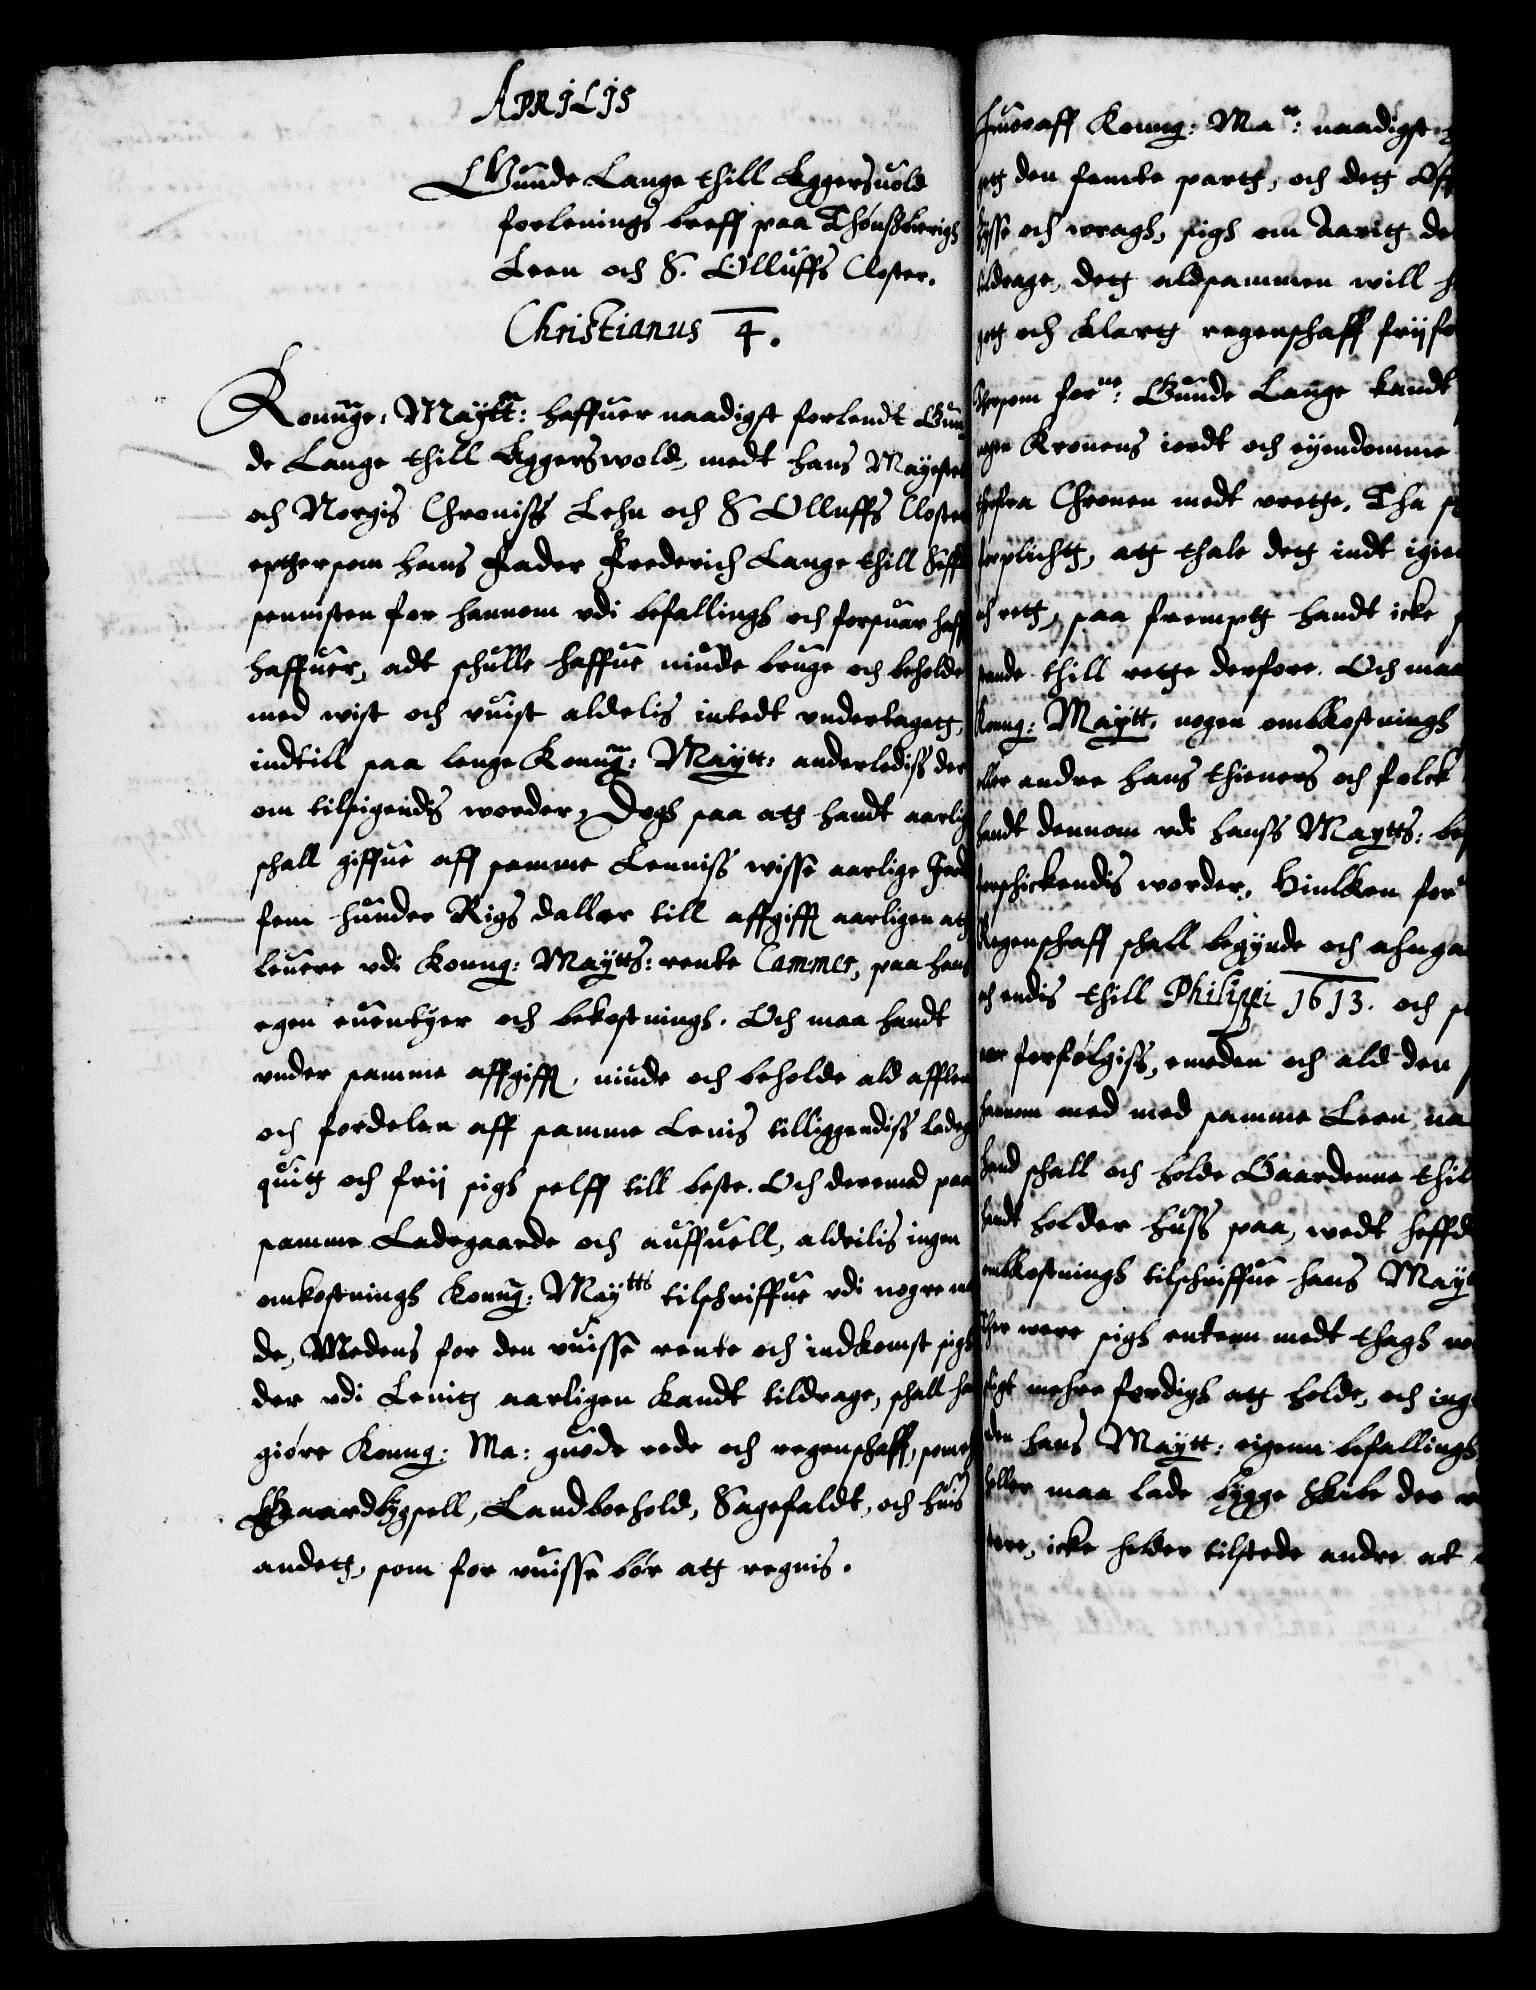 Aprilis
Gunde Lange thill Eggersuold
forlenings breff paa Thønsbierigs
Leen och S. Olluffs Closter.
Christianus 4.
Konnge: Maytt: haffuer naadigst forlendt Gun
de Lange thill Eggerswold, medt hans Mayestet
och Norgis Croniss Lehn och S Olluffs Closter
epthersom hans Fader Frederich Lange thill
sennisten for hannom vdi befallings och forsuar haff
haffuer, adt schulle haffue niude bruge och beholde
med wist och vuist aldelis intedt vndertagett,
indtill saa lenge Konng: Maytt: anderlediss der
om tilsigendis worder, Dogs saa att handt aarlig
schall giffue aff samme Lenniss wisse aarlige Jnd
fem hunder Rigs daller till affgifft aarligen att
leuere vdi Konng: Maytts: rente Cammer, paa hans
egen euentyer och bekostnings. Och maa handt
vnder samme affgifft, niude och beholde ald affle
och fordelen aff samme Lenis tilliggendiss ladeg
quitt och frij sigs selff till beste. Och deremod paa
samme Ladegaarde och auffuell, aldeilis ingen
omkostnings Konng: Maytts tilschriffue vdi nogre m
de, Medens for den vuisse rente och indkomst sigs
der vdi Lenitt aarligen kandt tildrage, schall ha
giøre Konng: Ma: guode rede och regenschaff, som e
Gaardbygsell, Landboehold, Sagefaldt, och huis
andett, som for vuisse bør att regnis.
huoraff Konng: Matt: naadigst
den femte partt, och dett
och wragh, sigs om Aaritt de
tildrage, dett aldsammen will h
och klartt regenschaff frijfo
som forne: Gunde Lange kandt
Kronens iordt och eyendomme
thefra Chronen medt rette, Tha s
forplichtt, att thale dett indt igien
och rett, saa fremptt handt icke
stande thill rette derfore. Och maa
Konng: Maytt, nogen ombkostnings
eller andre hans thieners och folck
handt dennom vdi hanss Maytts: be
forschickendis worder, Huilken for
Regenschaff schall begynde och ahnga
och endis thill Philippi 1613. och s
forfølgiss, emeden och ald den
hannom med med samme Leen na
hand schall och holde Gaardenne thil
handt holder huss paa, wedt heffd
ombkostnings tilschriffue hans May
were sigs entenn medt thags
mehre ferdigs att holde, och ing
den hans Maytt: eigenn befallings
heller maa lade bygge Skibe der
icke heller tilstede andre at